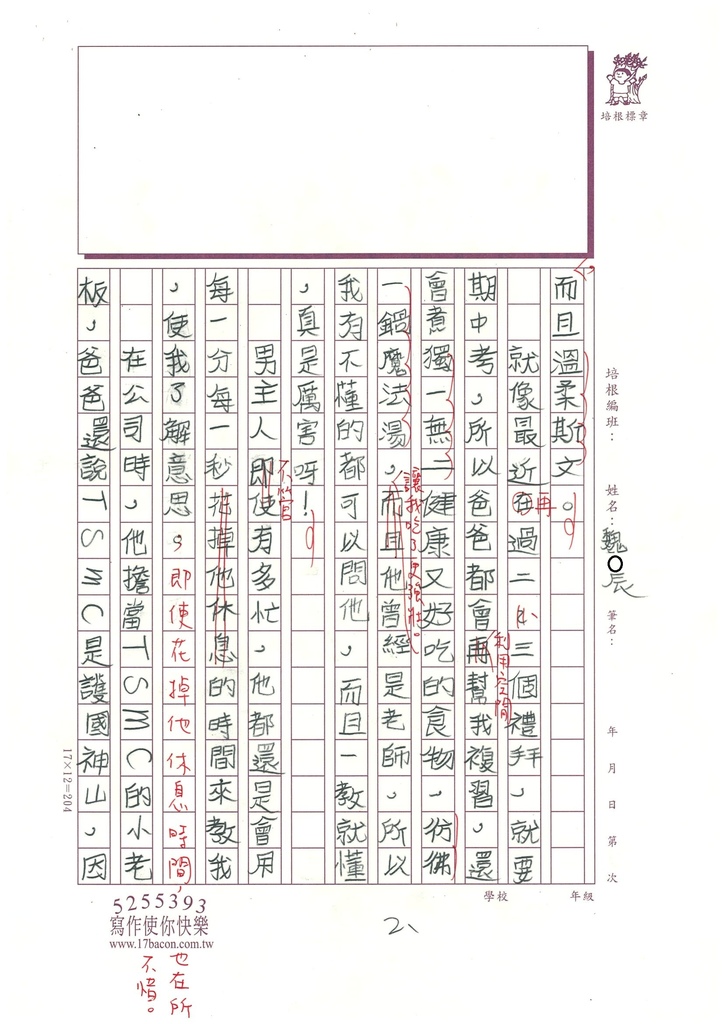 而且溫柔斯文。
就像最近在過二三個禮拜，就要
再
小
期中考，所以爸爸都會再幫我複習，還
利用空閒
會煮獨一無二健康又好吃的食物，彷彿
讓我吃了更強壯。
一鍋魔法湯，而且他曾經是老師，所以
我有不懂的都可以問他，而且一教就懂
，真是厲害呀！
男主人即使有多忙，他都還是會用
不管
每一分每一秒花掉他休息的時間來教我
，使我了解意思。即使花掉他休息時間，
也在所
不惜。
在公司時，他擔當TSMC的小老
板，爸爸還說TSMC是護國神山，因
培根標章
培根編班：
姓名：魏○辰
筆名：
年 月 日 第 次
學校 年級
17×12=204
5255393
寫作使你快樂
www.17bacon.com.tw
2、